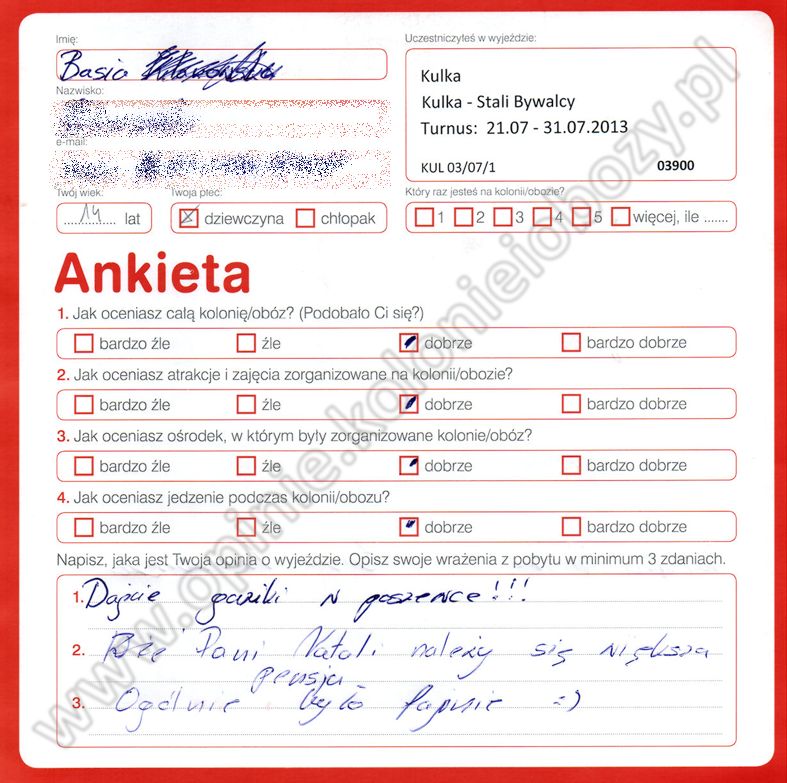 Imię:
Uczestniczyłeś w wyjeździe:
Basia
Kulka
Kulka - Stali Bywalcy
Turnus: 21.07 - 31.07.2013
KUL 03/07/1 03900
Nazwisko:
e-mail:
Twój wiek: Twoja płeć: Który raz jesteś na kolonii/obozie?
14 lat dziewczyna chłopak 1 2 3 4 5 więcej, ile .......
Ankieta
1. Jak oceniasz całą kolonię/obóz? (Podobało Ci się?)
bardzo źle źle dobrze bardzo dobrze
2. Jak oceniasz atrakcje i zajęcia zorganizowane na kolonii/obozie?
bardzo źle źle dobrze bardzo dobrze
3. Jak oceniasz ośrodek, w którym były zorganizowane kolonie/obóz?
bardzo źle źle dobrze bardzo dobrze
4. Jak oceniasz jedzenie podczas kolonii/obozu?
bardzo źle źle dobrze bardzo dobrze
Napisz, jaka jest Twoja opinia o wyjeździe. Opisz swoje wrażenia z pobytu w minimum 3 zdaniach.
1. Dajcie guziki w poszewce!!!
2. Pani Natali należy się większa
pensja
3. Ogólnie było fajnie =)
www.opinie.kolonieiobozy.pl